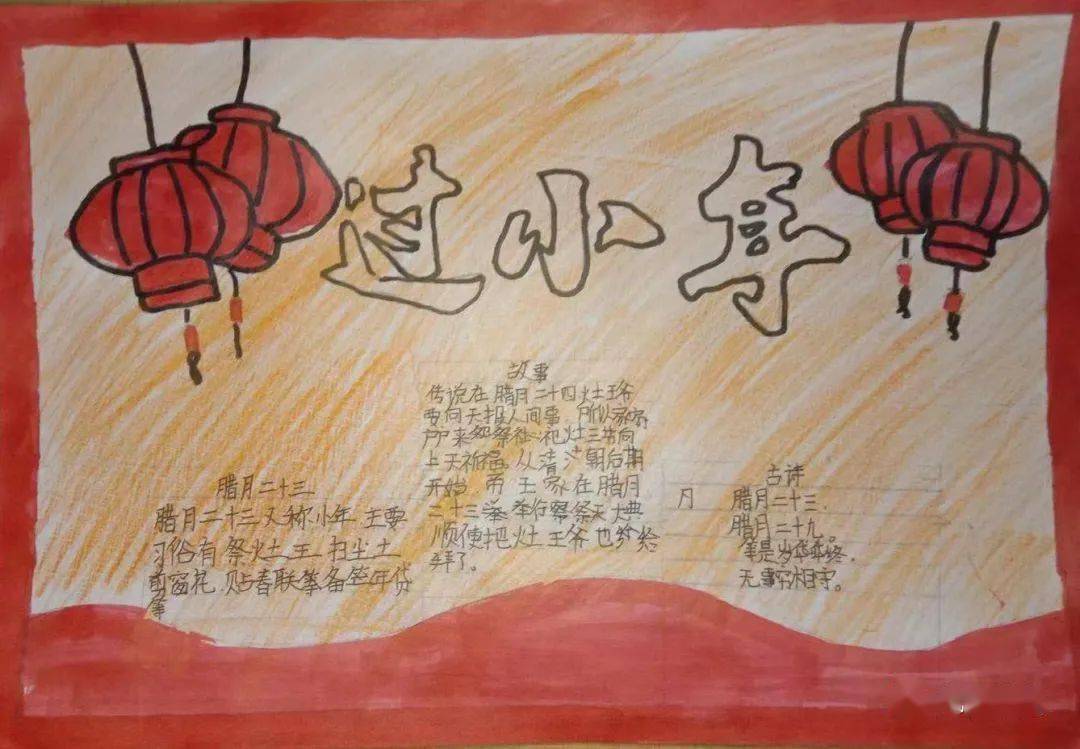 过小年
腊月二十三
腊月二十三又称小年.主要
习俗有祭灶王 扫尘土
剪窗花.贴春联 备年货
等
故事
传说在腊月二十四灶王爷
要向天报人间事.所以家家
户户来 祭社 祀灶 向
上天祈福。从清 朝后期
开始 帝王家在腊月
二十三 举行祭天大典
顺便把灶王爷也 给
拜了。
古诗
月 腊月二十三.
腊月二十九。
岁 终.
无事 相守。